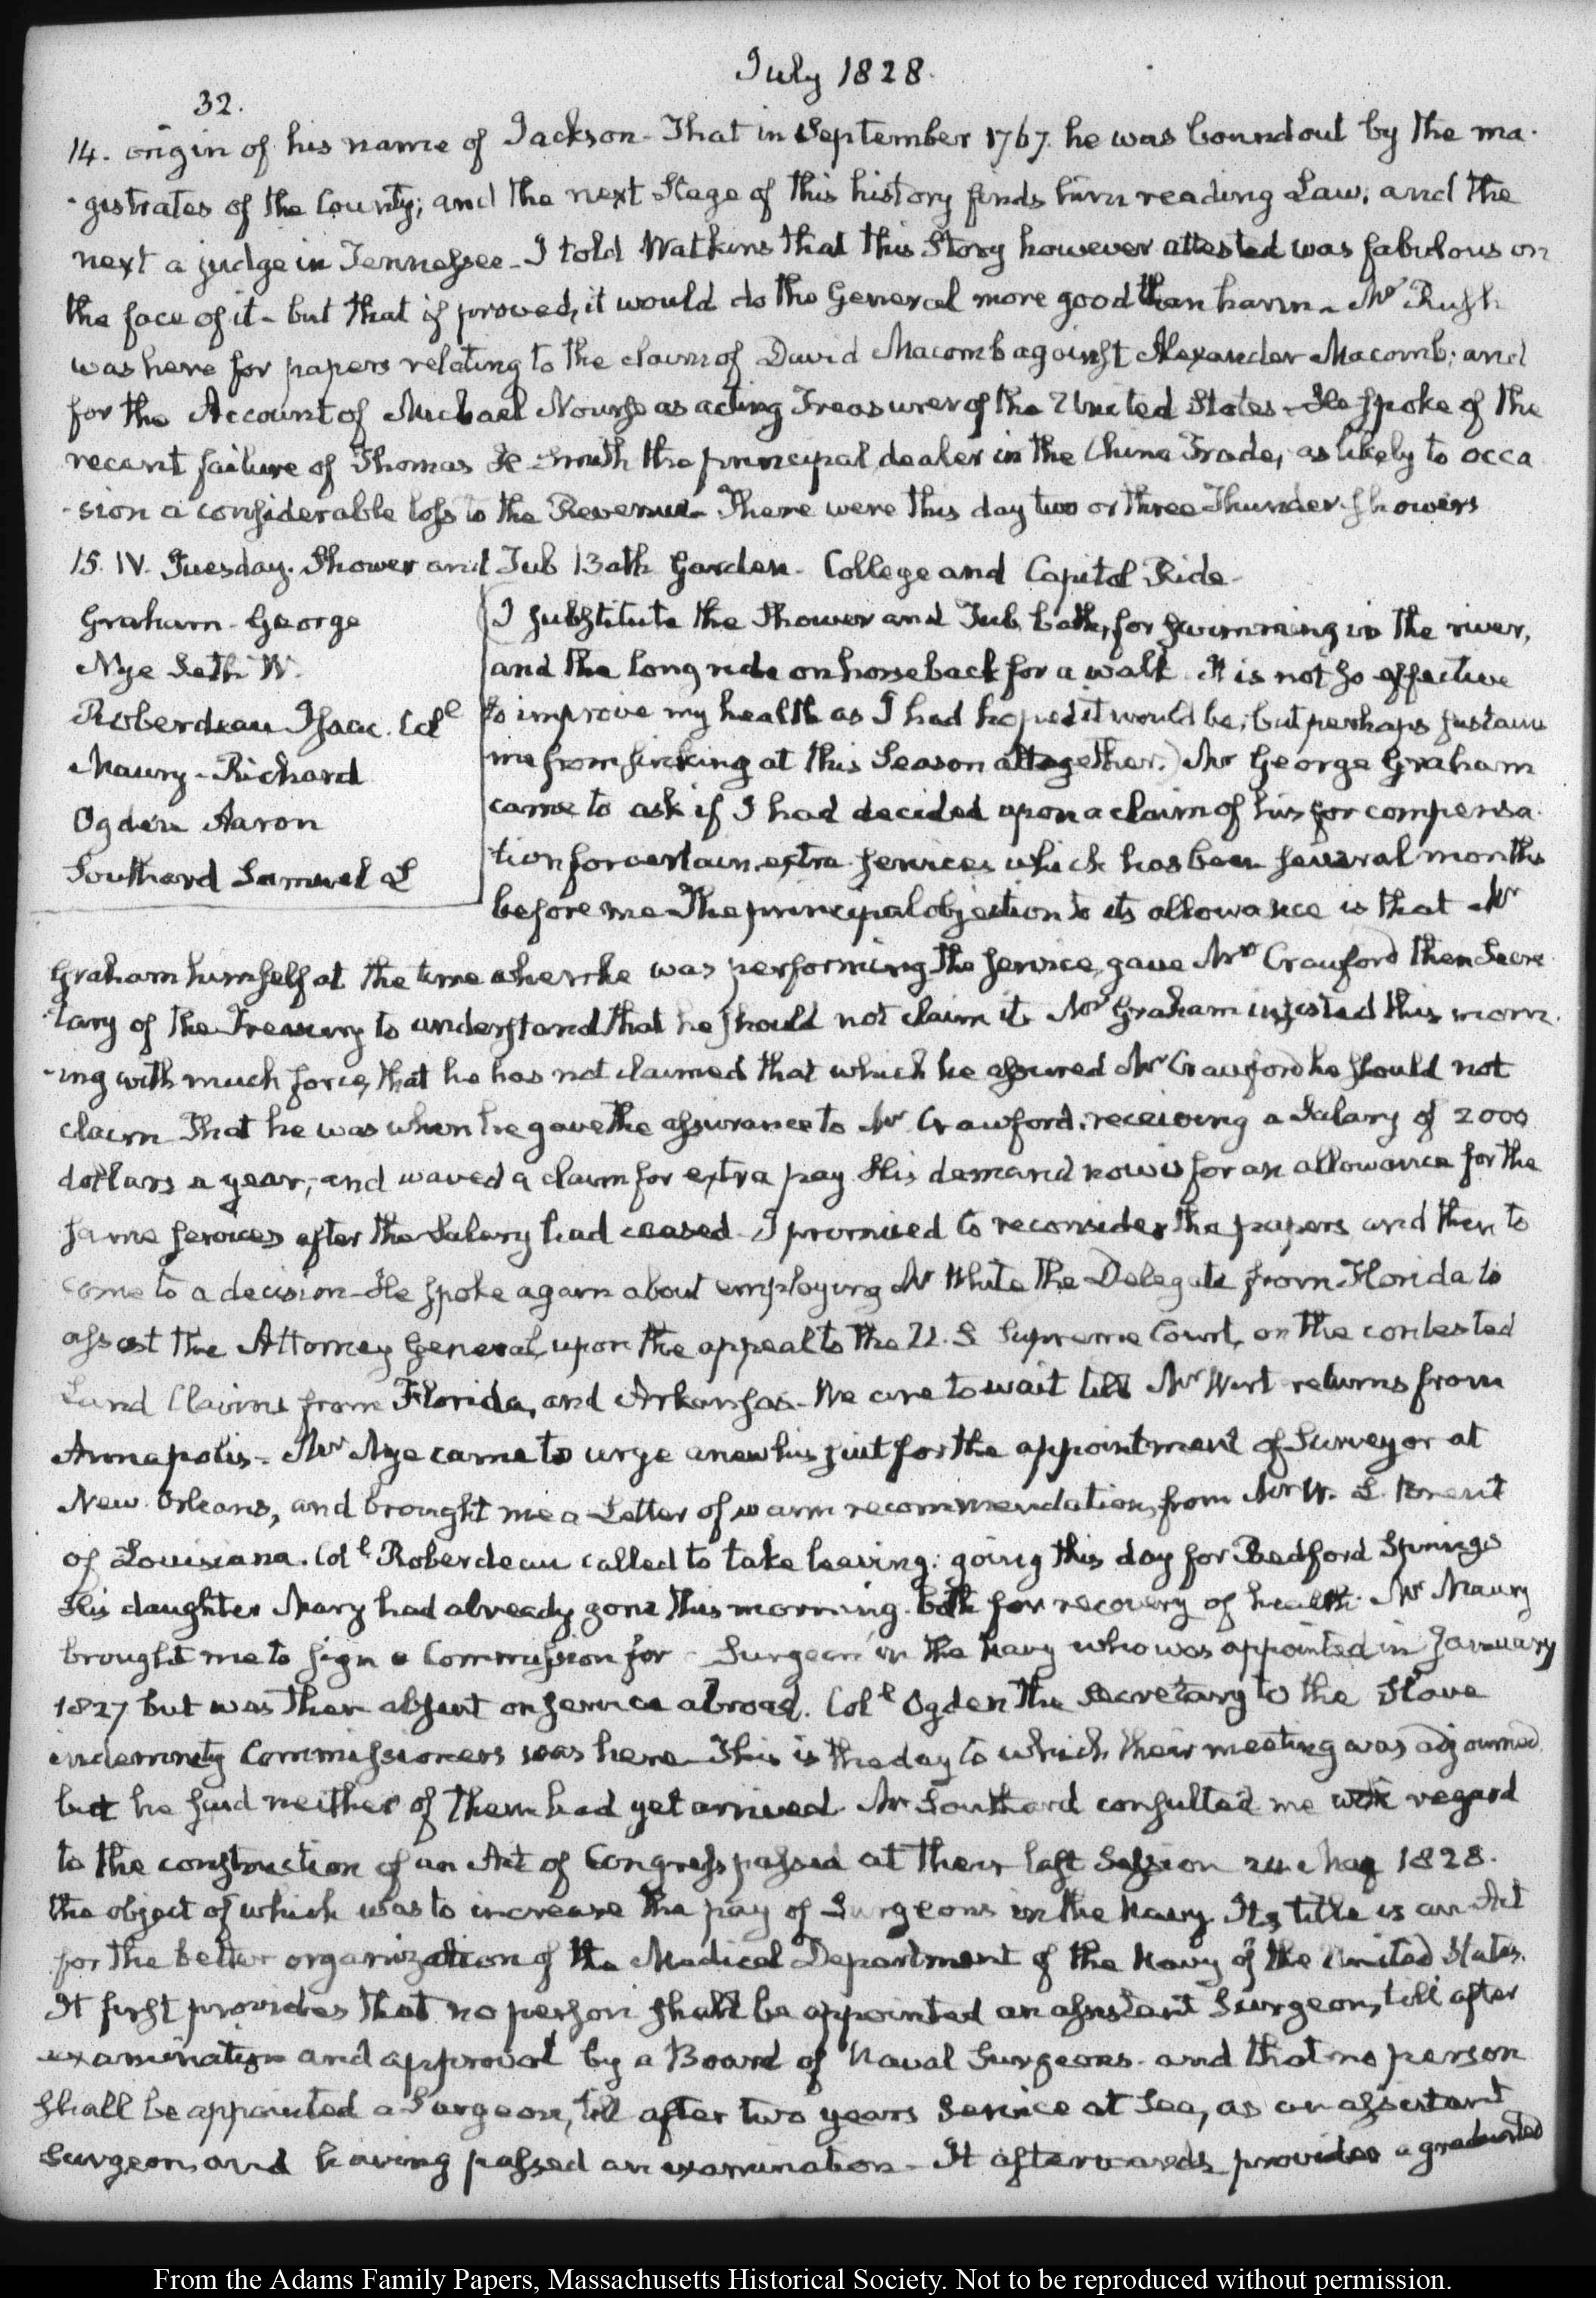 July 1828.
32.
14. origin of his name of Jackson - That in September 1767. he was bound out by the ma-
-gistrates of the County; and the next Stage of this history finds him reading Law; and the
next a judge in Tennessee - I told Watkins that this Story however attested was fabulous on
the face of it - but that if proved, it would do the General more good than harm - Mr Rush
was here for papers relating to the claim of David Macomb against Alexander Macomb; and
for the Account of Michael Nourse as acting Treasurer of the United States - He spoke of the
recent failure of Thomas H Smith the principal dealer in the China Trade, as likely to occa
-sion a considerable loss to the Revenue - There were this day two or three Thunder showers
15. IV. Tuesday. Shower and Tub Bath Garden - College and Capitol Ride -
Graham - George
Nye Seth W.
Roberdeau Isaac. Col
Maury - Richard
Ogden Aaron
Southard Samuel L
(I substitute the Shower and Tub bath, for swimming in the river,
and the long ride on horseback for a walk. It is not so effective
to improve my health as I had hoped it would be; but perhaps sustains
me from sinking at this Season altogether.) Mr George Graham
came to ask if I had decided upon a claim of his for compensa-
-tion for certain extra services which has been several months
before me - The principal objection to its allowance is that Mr
Graham himself at the time when he was performing the service, gave Mr Crawford then Secre
-tary of the Treasury to understand that he should not claim it. Mr Graham insisted this morn-
-ing with much force, that he has not claimed that which he assured Mr Crawford he should not
claim - That he was when he gave the assurance to Mr Crawford, receiving a Salary of 2000
dollars a year; and waved a claim for extra pay. His demand now is for an allowance for the
same services after the Salary had ceased - I promised to reconsider the papers and then to
come to a decision - He spoke again about employing Mr White the Delegate from Florida to
assist the Attorney General, upon the appeal to the U.S. Supreme Court, on the contested
Land Claims from Florida, and Arkansas - We are to wait till Mr Wirt returns from
Annapolis - Mr Nye came to urge anew his suit for the appointment of Surveyor at
New Orleans, and brought me a Letter of warm recommendation, from Mr W. L. Brent
of Louisiana. Coll Roberdeau called to take leaving: going this day for Bedford Springs
His daughter Mary had already gone this morning - both for recovery of health. Mr Maury
brought me to sign a Commission for - Surgeon in the Navy who was appointed in January
1827 but was then absent on service abroad. Coll Ogden the Secretary to the Slave
indemnity Commissioners was here - This is the day to which their meeting was adjourned
but he said neither of them had yet arrived. Mr Southard consulted me with regard
to the construction of an Act of Congress passed at their last Session 24. May 1828.
the object of which was to increase the pay of Surgeons in the Navy. Its title is an Act
for the better organization of the Medical Department of the Navy of the United States.
It first provides that no person shall be appointed an assistant Surgeon, till after
examination and approval by a Board of Naval Surgeons - and that no person
shall be appointed a Surgeon, till after two years Service at Sea, as an assistant
Surgeon and having passed an examination - It afterwards provides a graduated
From the Adams Family Papers, Massachusetts Historical Society. Not to be reproduced without permission.